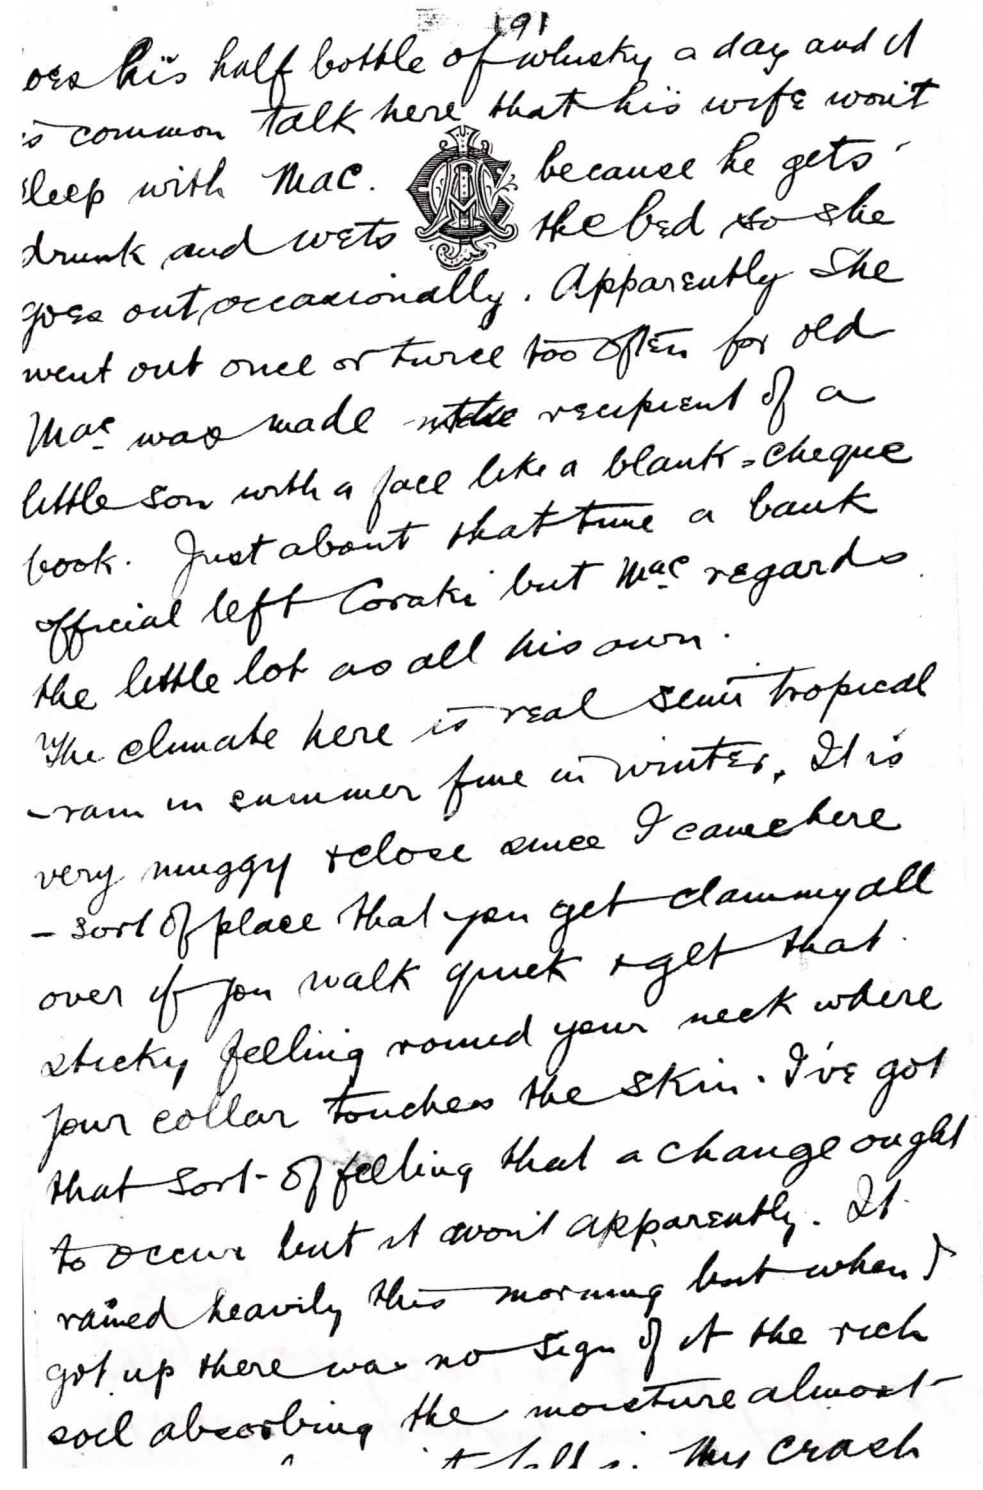 191
oes his half bottle of whisky a day and it
is common talk here that his wife won't
sleep with Mac. because he gets
drunk and wets the bed so she
goes out occasionally. Apparently she
went out once or twice too often for old
Mac was made the recipient of a
little son with a face like a blank-cheque
book. Just about that time a bank
official left Coraki but Mac regards
the little lot as all his own.
The climate here is real semi tropical
-rain in summer fine in winter. It is
very muggy & close since I came here
- sort of place that you get clammy all
over if you walk quick & get that
sticky feeling round your neck where
your collar touches the skin. I've got
that sort of feeling that a change ought
to occur but it won't apparently. It
rained heavily this morning but when I
got up there was no sign of it the rich
soil absorbing the moisture almost
My crash